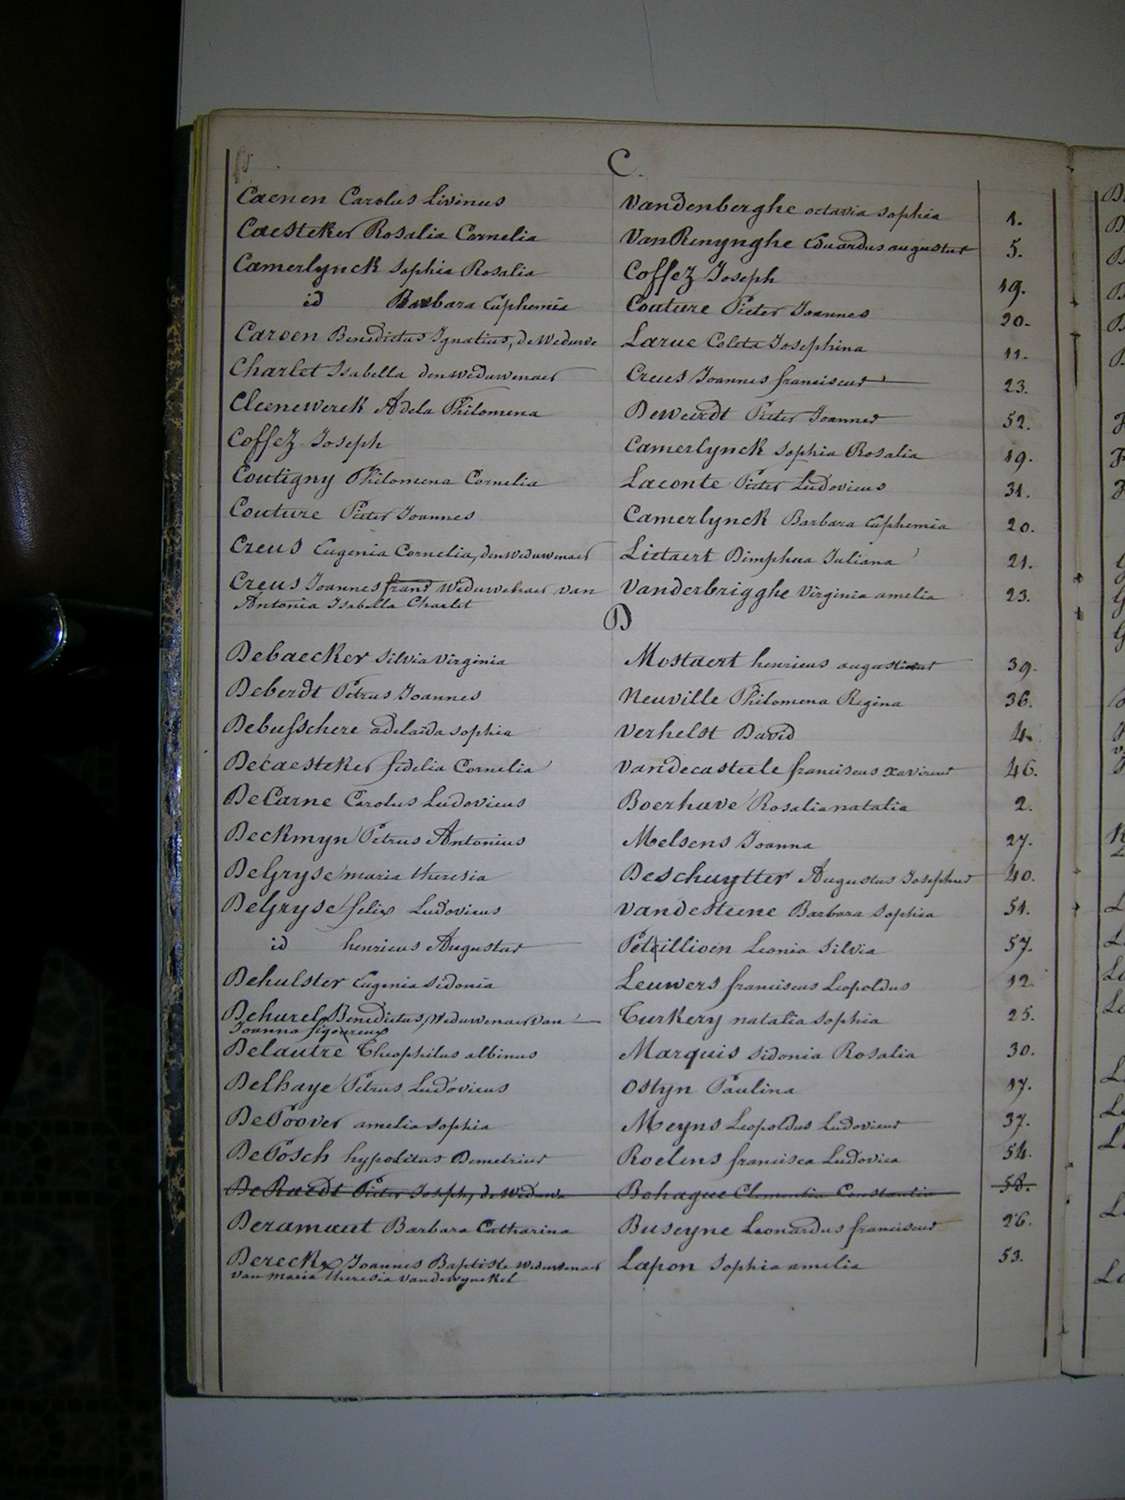 C.
Caenen Carolus Livinus Vandenberghe octavia Sophia 1.
Caesteker Rosalia Cornelia VanRenynghe Eduardus augustus 5.
Camerlynck Sophia Rosalia Coffez Joseph 19.
id Barbara Euphemia Couture Pieter Joannes 20.
Caroen Benedictus Ignatius, de Weduwe Larue Coleta Josephina 11.
Charlet Isabella den weduwenaer Creus Joannes franciscus 23.
Cleenewerck Adela Philomena Deweirdt Pieter Joannes 52.
Coffez Joseph Camerlynck Sophia Rosalia 19.
Coutigny Philomena Cornelia Laconte Pieter Ludovicus 31.
Couture Pieter Joannes Camerlynck Barbara Euphemia 20.
Creus Eugenia Cornelia, den weduwenaer Lietaert Dimphna Juliana 21.
Creus Joannes frans Weduwenaer van Vanderbrigghe Virginia amelia 23.
Antonia Isabella Charlet
D
Debaecker Silvia Virginia Mostaert henricus augustinus 39.
Deberdt Petrus Joannes Neuville Philomena Regina 36.
Debusschere adelaïda sophia Verhelst David 4.
Decaesteker fidelia Cornelia Vandecasteele franciscus xaverius 46.
DeCarne Carolus Ludovicus Boerhave Rosalia natalia 2.
Deckmyn Petrus Antonius Melsens Joanna 27.
DeGryse maria theresia Deschuytter Augustus Josephus 40.
DeGryse felix Ludovicus Vandesteene Barbara Sophia 51.
id henricus Augustus Petillioen Leonia Silvia 57.
Dehulster Eugenia Sidonia Leuwers franciscus Leopoldus 12.
Dehurel Benedictus, Weduwenaer van Turkery natalia Sophia 25.
Joanna figoureux
Delautre Theophilus albinus Marquis Sidonia Rosalia 30.
Delhaye Petrus Ludovicus Ostyn Paulina 17.
DePoover amelia Sophia Meyns Leopoldus Ludovicus 37.
DePosch hypolitus Demetrius Roelens francisca Ludovica 54.
DeRaedt Pieter Joseph, de Weduwe Bohague Clementia Constantia 58.
Deramaut Barbara Catharina Buseyne Leonardus franciscus 26.
Dereckx Joannes Baptiste Weduwenaer Lapon Sophia amelia 53.
van maria theresia vandewynckel